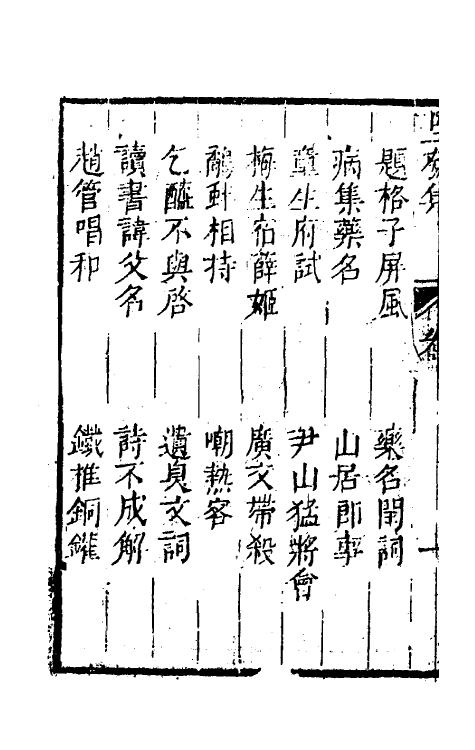 題格子屏風　藥名閨詞
病集藥名　山居即事
童生府試　尹山猛將會
梅生宿薛姬　廣文帶殺
鷸蚌相持　嘲熱客
乞醯不與啓　遺臭文詞
讀書諱父名　詩不成解
趙管唱和　鐵推銅鑵